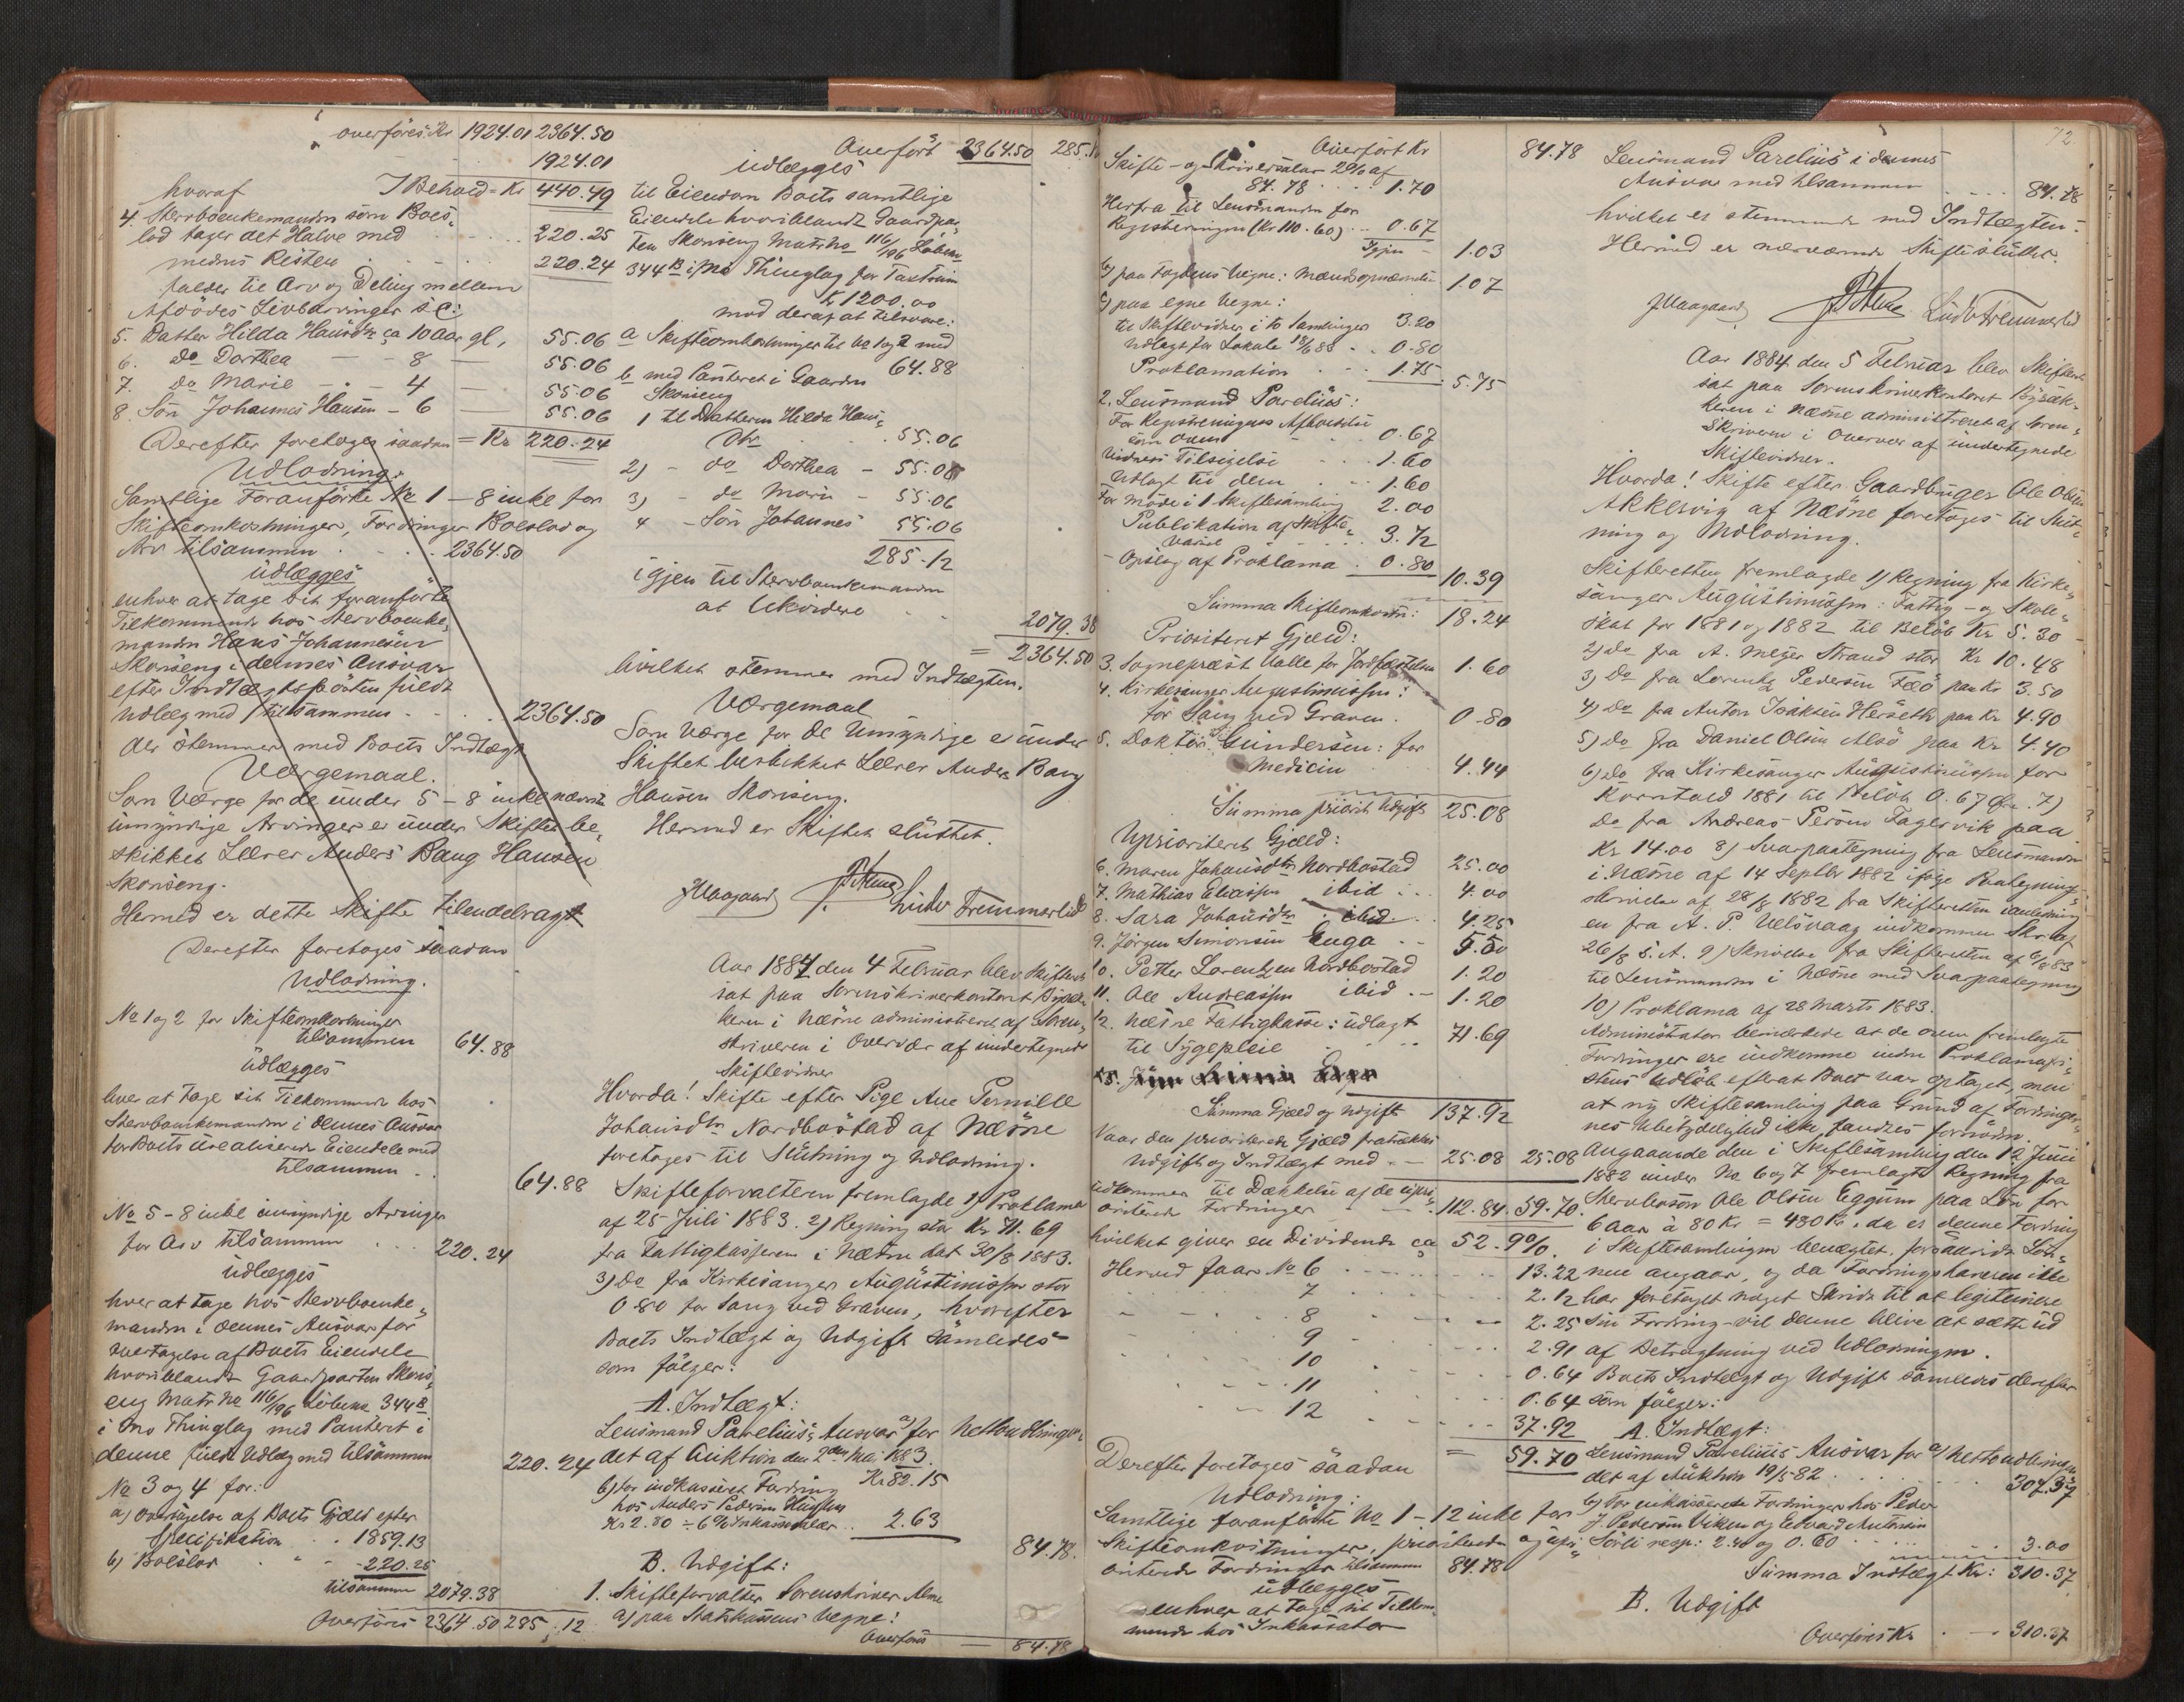 overføres Kr 1924.01 2364.50
1924.01
hvoraf I Behold = Kr 440.49
4. Stervboenkemanden som Boes-
lod tager det Halve med 220.25
medens Resten 220.24
falder til Arv og Deling mellem
Afdødes Livsarvinger s: C:
5. Datter Hilda Hansdtr ca 10 Aar gl, 55.06
6. do Dorthea — 8 — 55.06
7. do Marie — 4 — 55.06
8. Søn Johannes Hansen — 6 — 55.06
Derefter foretages saadan = Kr 220.24
Udlodning:
Samtlige Foranførte No 1 — 8 inkl for
Skifteomkostninger, Fordringer Boeslod og
Arv tilsammen 2364.50
udlægges
enhver at tage sit foranførte
Tilkommende hos Stervboenke-
manden Hans Johannesen
Skonseng i dennes Ansvar
efter Indtægtsposten fuldt
Udlæg med tilsammen 2364.50
der stemmer med Boets Indtægt
Værgemaal.
Som Værge for de under 5 — 8 inkl nævnte
umyndige Arvinger er under Skiftet be-
skikket Lærer Anders Bang Hansen
Skonseng.
Hermed er dette Skifte tilendebragt
Derefter foretoges saadan
Udlodning.
No 1 og 2 for Skifteomkostninger
tilsammen 64.88
udlægges
hver at tage sit Tilkommende hos
Stervboenkemanden i dennes Ansvar
for Boets urealiserede Eiendele med
tilsammen 64.88
No 5 — 8 inkl umyndige Arvinger
for Arv tilsammen 220.24
udlægges
hver at tage hos Stervboenke-
manden i dennes Ansvar for
overtagelse af Boets Eiendele
hvoriblandt Gaardparten Skons-
eng Matr No 116/196 Løbeno 344B
i Mo Thinglag med Panteret i
denne fuldt Udlæg med tilsammen 220.24
No 3 og 4 for:
a) overtagelse af Boets Gjæld efter
Specifikation 1859.13
b) Boeslod 220.25
tilsammen 2079.38
Overføres 2364.50 285.12
Overført 2364.50 285.12
udlægges
til Eiendom Boets samtlige
Eiendele hvoriblandt Gaardpar-
ten Skonseng Matr No 116/196 Løbeno
344B i Mo Thinglag for Taxtsum
Kr 1200.00
mod deraf at tilsvare:
a Skifteomkostninger til No 1 og 2 med
64.88
b med Panteret i Gaarden
Skonseng
1 til Datteren Hilda Hans-
dtr 55.06
2) - do Dorthea - 55.06
3) - do Marie - 55.06
4 - Søn Johannes 55.06
285.12
igjen til Stervboenkemanden
at likvidere 2079.38
= 2364.50
hvilket stemmer med Indtægten.
Værgemaal
Som Værge for de Umyndige er under
Skiftet beskikket Lærer Anders Bang
Hansen Skonseng.
Hermed er Skiftet sluttet.
J Waagaard
Aar 1884 den 4 Februar blev Skifteret
sat paa Sorenskriverkontoret Bysæk-
keren i Næsne administreret af Soren-
skriveren i Overvær af undertegnede
Skiftevidner
Hvorda! Skifte efter Pige Ane Pernille
Johansdtr Nordbostad af Næsne
foretoges til Slutning og Udlodning.
Skifteforvalteren fremlagde 1) Proklama
af 25 Juli 1883. 2) Regning stor Kr 71.69
fra Fattigkassereren i Næsne dat 30/8 1883.
3) Do fra Kirkesanger Augustinussen stor
0.80 for Sang ved Graven, hvorefter
Boets Indtægt og Udgift saaledes
som følger:
A. Indtægt:
Lensmand Parelius's Ansvar a) for Nettoudbringen-
det af Auktion den 2den Mai 1883. Kr 82.15
b) for indkasseret Fordring
hos Anders Pedersen
Kr 2.80 ÷ 6% Inkassosalær 2.63
84.78.
B. Udgift:
1. Skifteforvalter Sorenskriver
a) paa Statskassens Vegne:
Overføres — 84.78
Overført Kr 84.78
Skifte- og Skriversalær 2% af
84.78 1.70
Herfra til Lensmanden for
Registreringen (Kr 110.60) 0.67
Igjen 1.03
b) paa Fogdens Vegne: Mandsopnævnelse 1.07
c) paa egne Vegne:
til Skiftevidner i to Samlinger 3.20
Udlagt for Lokale 12/6 83 0.80
Proklamation 1.75 5.75
2. Lensmand Parelius:
For Registreringens Afholdelse
som oven 0.67
Vidners Tilsigelse 1.60
Udlagt til dem 1.60
For Møde i 1 Skiftesamling 2.00
Publikation af Skifte-
3.72
Opslag af Proklama 0.80 10.39
Summa Skifteomkostn: 18.24
Prioriteret Gjæld:
3. Sognepræst Valle for Jordfæstelsen 1.60
4. Kirkesanger Augustinussen:
for Sang ved Graven. 0.80
5. Doktor Gundersen: for
Medicin 4.44
Summa priorit Udgift 25.08
Uprioriteret Gjæld:
6. Maren Johansdtr Nordbostad 25.00
7. Mathias Eliassen ibid 4.00
8. Sara Johansdtr ibid 4.25
9. Jørgen Simonsen Enga 5.50
10. Petter Lorentzen Nordbostad 1.20
11. Ole Andreassen ibid 1.20
12. Næsne Fattigkasse: udlagt
til Sygepleie 71.69
Summa Gjæld og Udgift 137.92
Naar den prioriterede Gjæld fratrækkes
Udgift og Indtægt med 25.08 25.08
udkommer til Dækkelse af de upri-
oriterede Fordringer 112.84. 59.70.
hvilket giver en Dividende ca 52.9%.
Herved faar No 6 13.22
7 2.12
8 2.25
9 2.91
10 0.64
11 0.64
12 37.92
= 59.70
Derefter foretoges saadan
Udlodning:
Samtlige foranførte No 1 — 12 inkl for
Skifteomkostninger, prioriterede og upri-
oriterede Fordringer tilsammen 84.78
udlægges
enhver at tage sit Tilkom-
mende hos Inkassator
72
Lensmand Parelius i dennes
Ansvar med tilsammen 84.78
hvilket er stemmende med Indtægten.
Hermed er nærværende Skifte sluttet.
J Waagaard
Aar 1884 den 5 Februar blev Skifteret
sat paa Sorenskriverkontoret Bysæk-
keren i Næsne administreret af Soren-
skriveren i Overvær af undertegnede
Skiftevidner.
Hvorda! Skifte efter Gaardbruger Ole Olsen
Akkersvig af Næsne foretoges til Slut-
ning og Udlodning.
Skifteretten fremlagde 1) Regning fra Kirke-
sanger Augustinussen: Fattig- og Skole-
skat for 1881 og 1882 til Beløb Kr 5.30
2) Do fra A. Meyer Strand stor Kr 10.48
3) Do fra Lorentz Pedersen paa Kr 3.50
4) Do fra Anton Isaksen Herseth paa Kr 4.90
5) Do fra Daniel Olsen paa Kr 4.40
6) Do fra Kirkesanger Augustinussen for
Korntold 1881 til Beløb 0.67 Øre. 7)
Do fra Andreas Fagervik paa
Kr 14.00 8) Svarpaategning fra Lensmanden
i Næsne af 14 Septbr 1882 ifølge Paategnings-
skrivelse af 28/8 1882 fra Skifteretten i anledning
en fra A. P. Ulsvaag indkommen Skr af
26/8 s. A. 9) Skrivelse fra Skifteretten af
til Lensmanden i Næsne med Svarpaategning
10) Proklama af 28 Marts 1883.
Administrator bemærkede at de oven fremlagte
Fordringer ere indkomne inden Proklamafri-
stens Udløb efterat Boet var optaget, men
at ny Skiftesamling paa Grund af Fordringer-
nes Ubetydelighed ikke fandtes fornøden.
Angaaende den i Skiftesamling den 12 Juni
1882 under No 6 og 7 fremlagte Regning fra
Stervbosøn Ole Olsen Eggum paa Løn for
6 Aar à 80 Kr = 480 Kr, da er denne Fordring
i Skiftesamlingen benægtet, forsaavidt Løn-
nen angaar, og da Fordringshaveren ikke
har foretaget noget Skridt til at legitimere
sin Fordring — vil denne blive at sætte ud
af Betragtning ved Udlodningen.
Boets Indtægt og Udgift saaledes derefter
som følger:
A. Indtægt:
Lensmand Parelius's Ansvar for a) Nettoudbringen-
det af Auktion 19/5-82 307.37
b) For inkasserede Fordringer hos Peder
J. Pedersen Viken og Edvard Antonsen
Sørli resp: 2.40 og 0.60 3.00
Summa Indtægt Kr: 310.37
B. Udgift
Overføres Kr 310.37